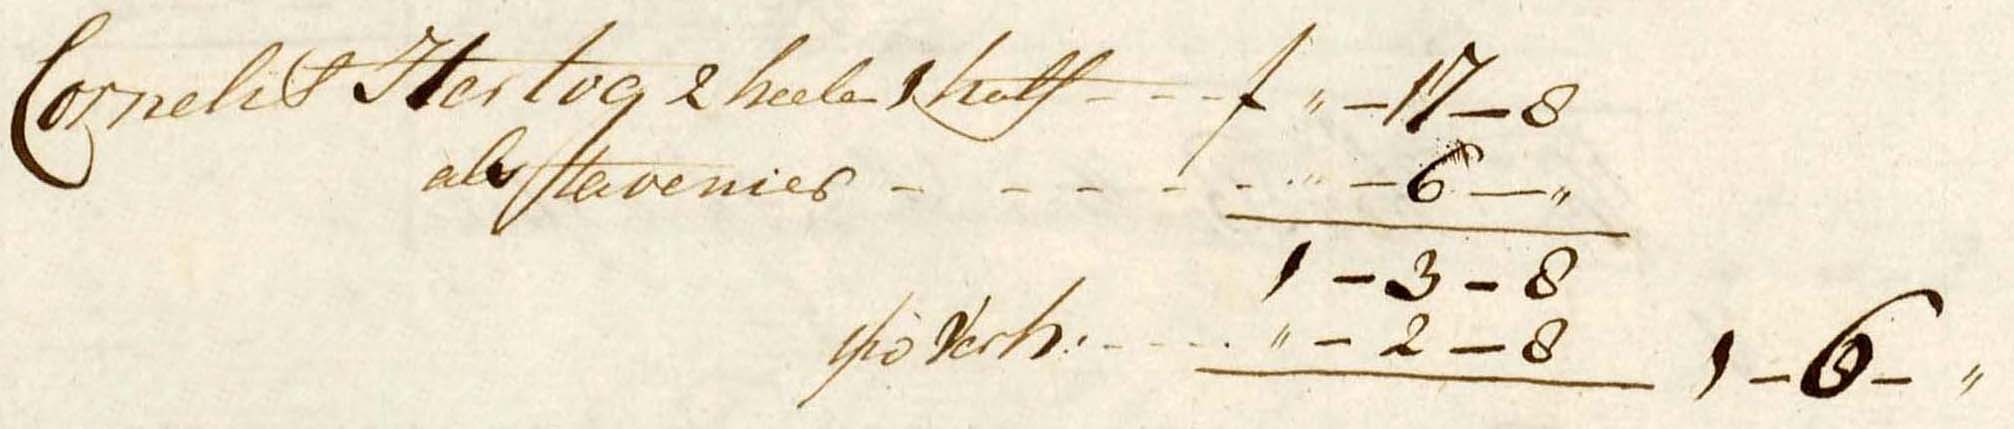 Cornelis Hertog 2 heele 1 half - - - f " - 17 - 8
als tavenier - - - - - - " - 6 - "
1 - 3 - 8
p:o verh: - - - - " - 2 - 8 1 - 6 - "